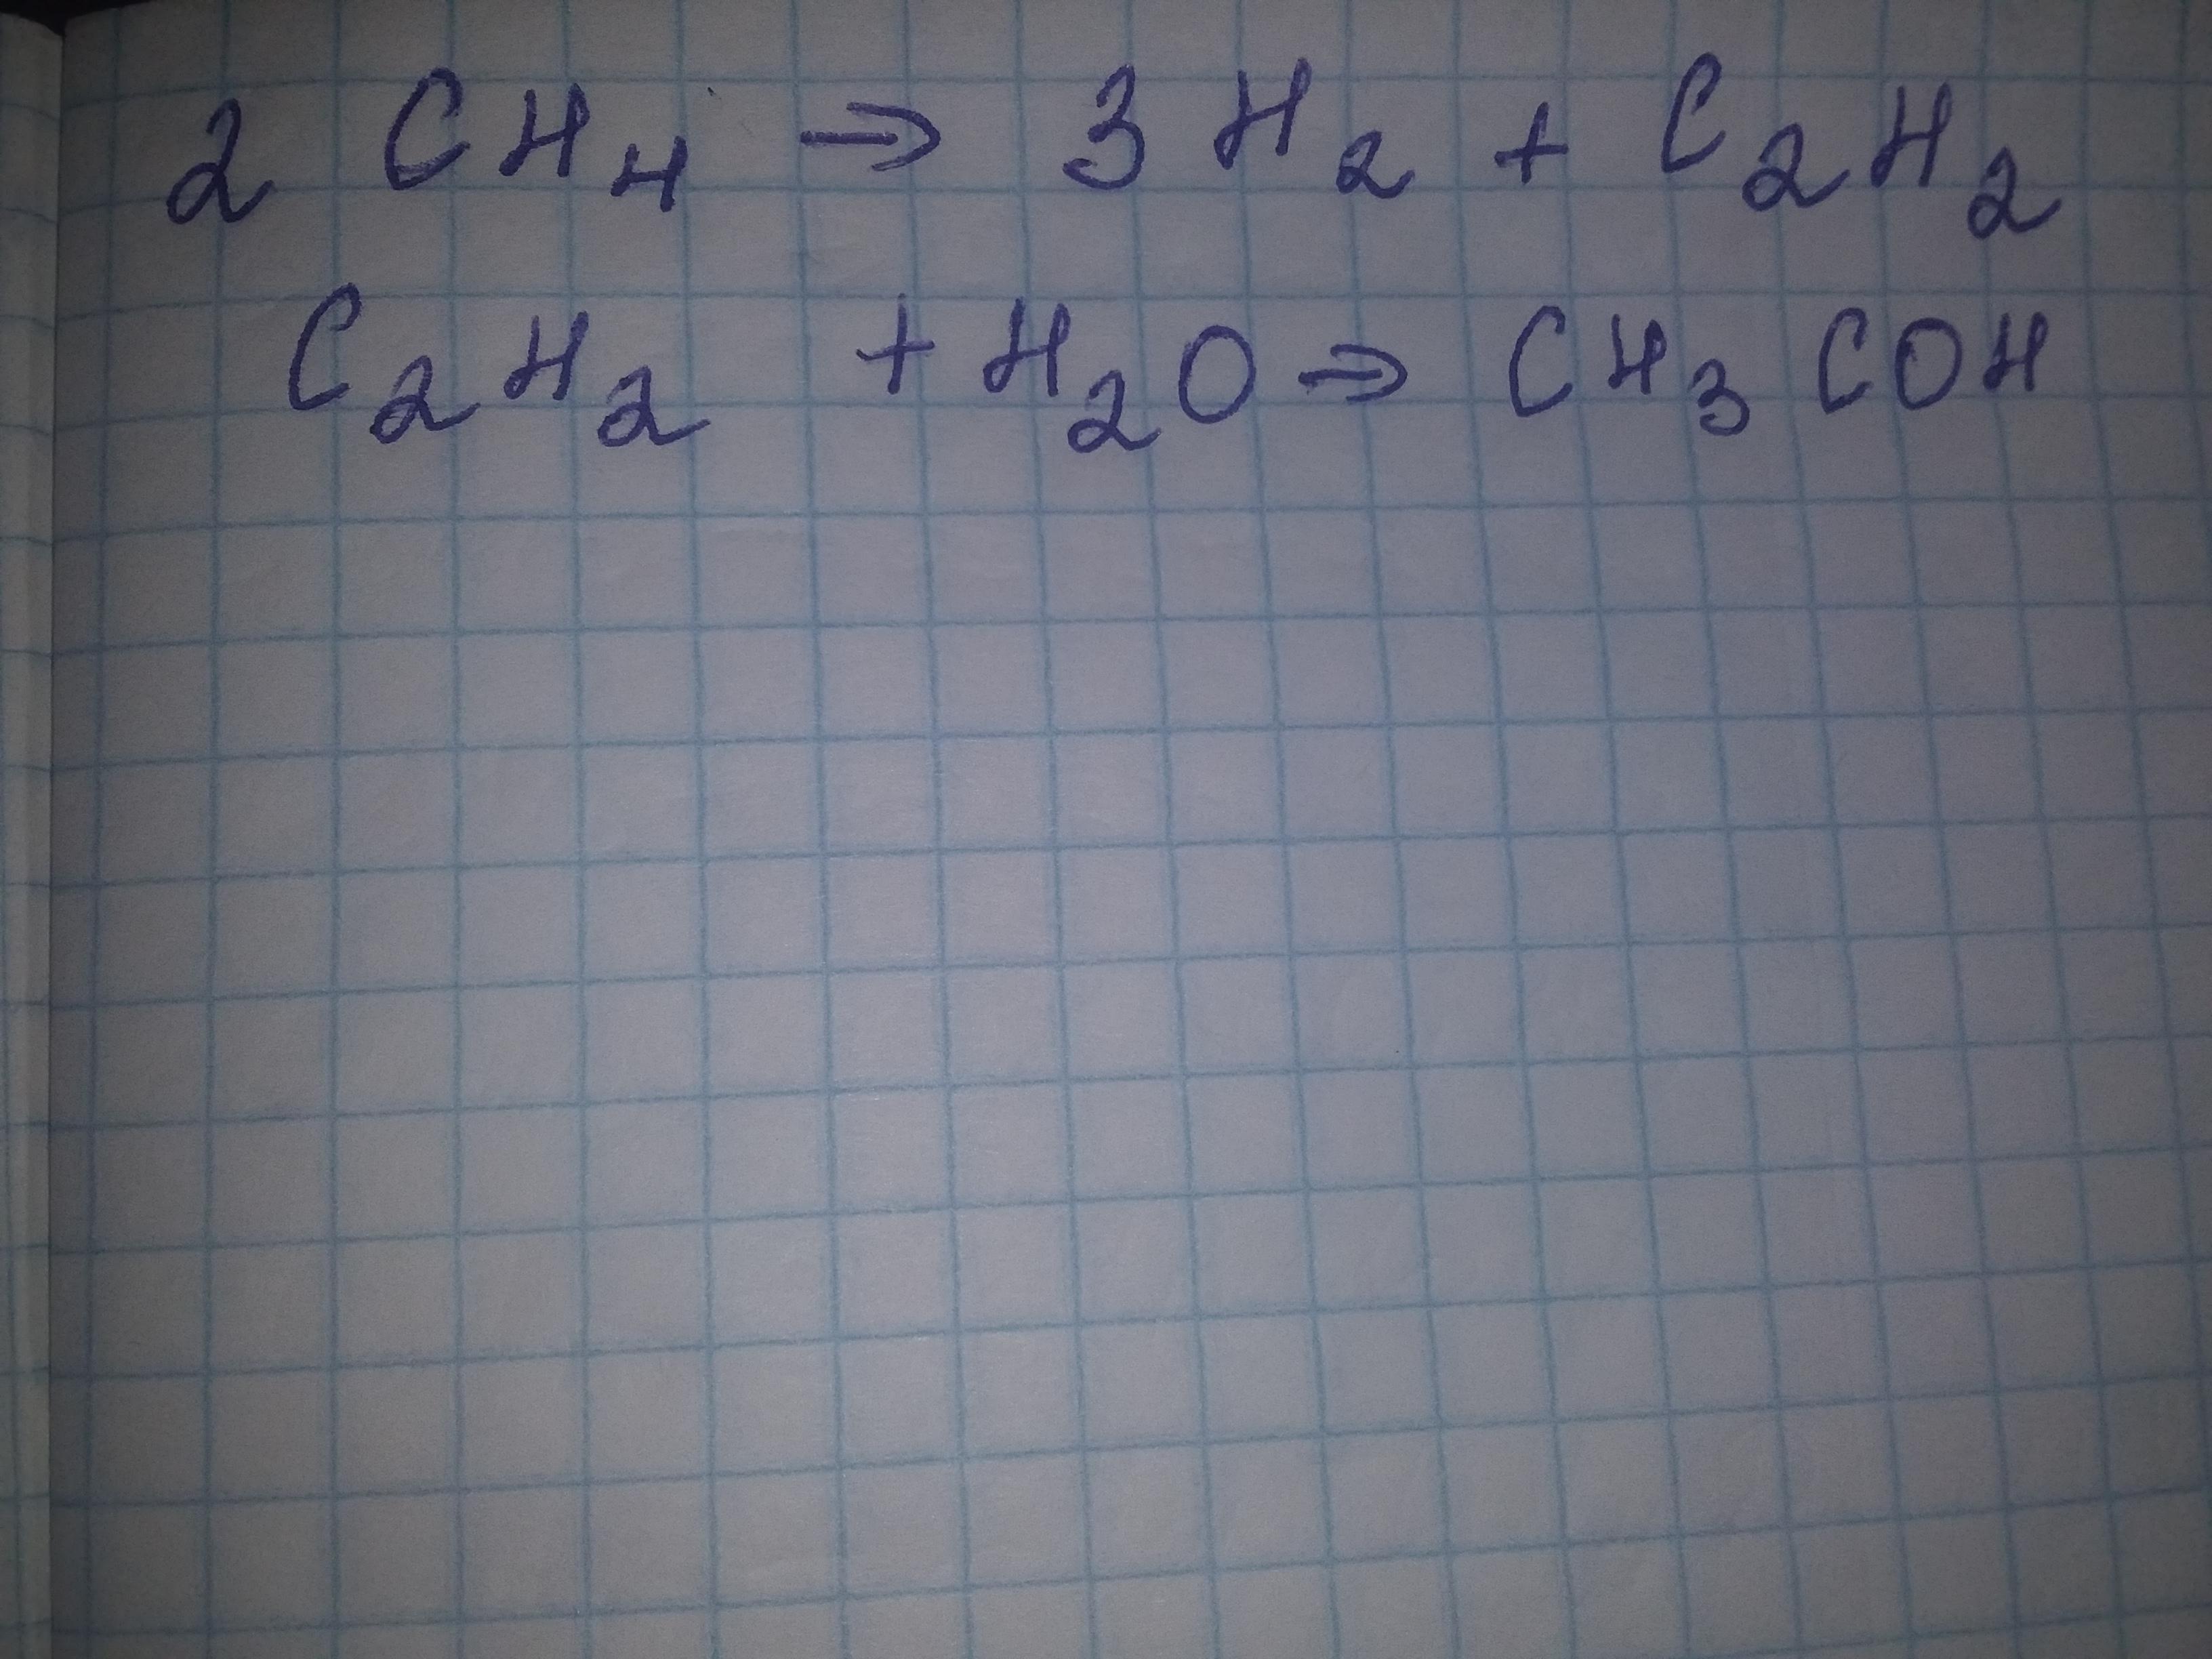 2 CH₄ → 3 H₂ + C₂H₂
C₂H₂ + H₂O → CH₃COH